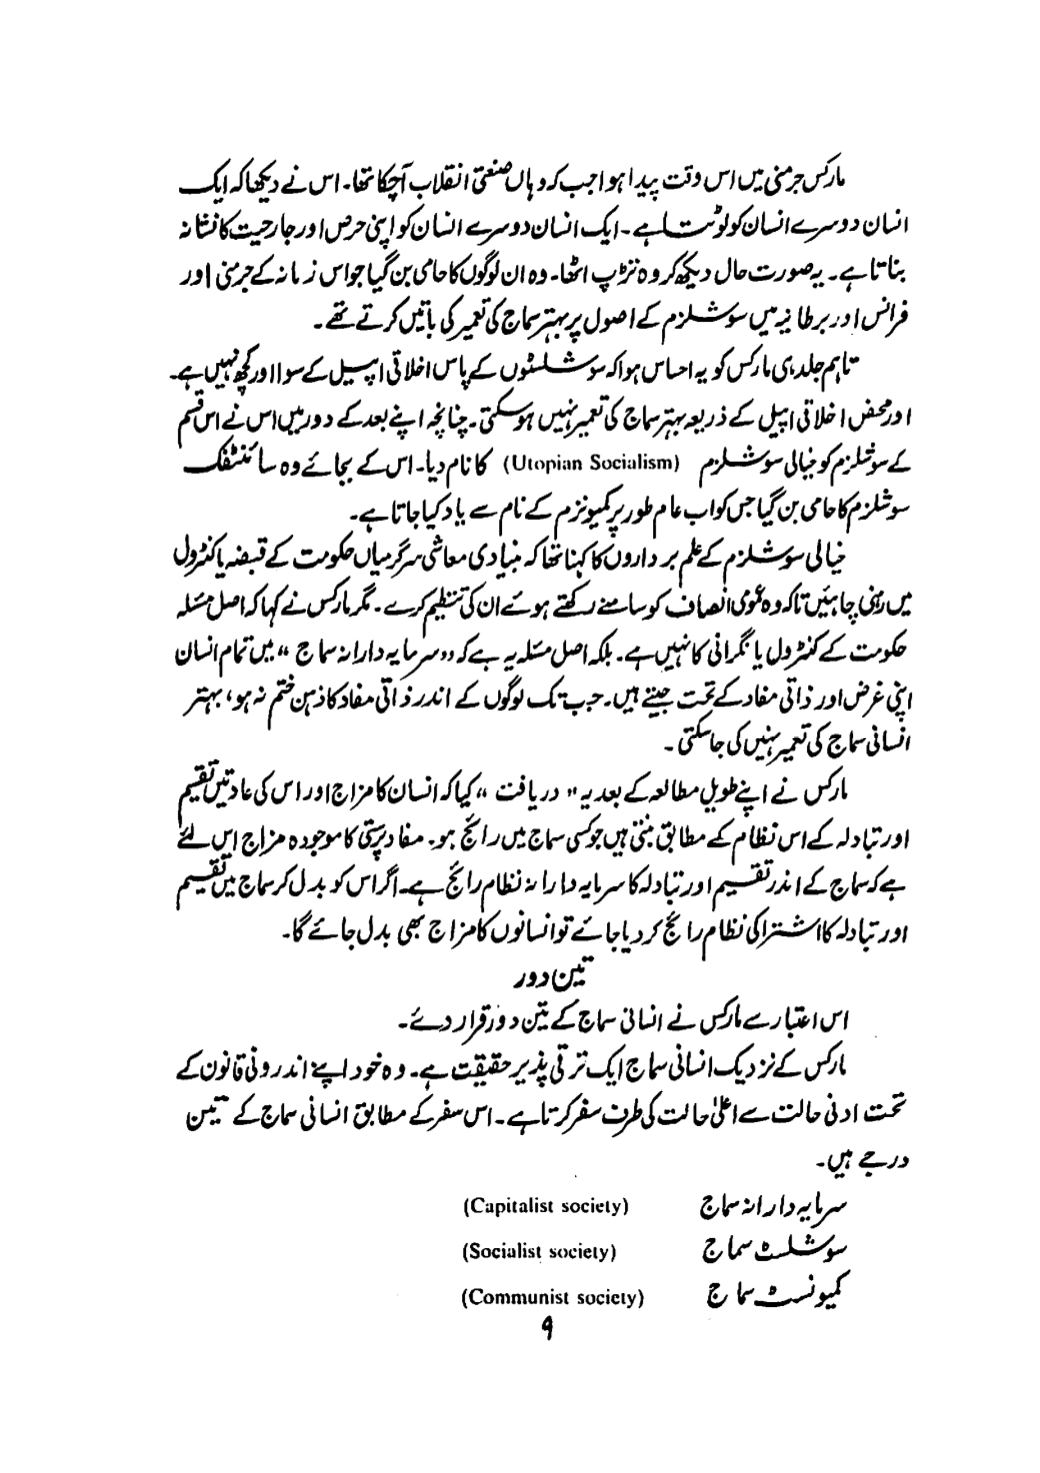 مارکس جرمنی میں اس وقت پیدا ہوا جب کہ وہاں صنعتی انقلاب آچکا تھا۔ اس نے دیکھا کہ ایک
انسان دوسرے انسان کو لوٹتا ہے۔ ایک انسان دوسرے انسان کو اپنی حرص اور جارحیت کا نشانہ
بناتا ہے۔ یہ صورت حال دیکھ کر وہ تڑپ اٹھا۔ وہ ان لوگوں کا حامی بن گیا جو اس زمانہ کے جرمنی اور
فرانس اور برطانیہ میں سوشلزم کے اصول پر بہتر سماج کی تعمیر کی باتیں کرتے تھے۔
تاہم جلد ہی مارکس کو یہ احساس ہوا کہ سوشلسٹوں کے پاس اخلاقی اپیل کے سوا اور کچھ نہیں ہے۔
اور محض اخلاقی اپیل کے ذریعہ بہتر سماج کی تعمیر نہیں ہوسکتی۔ چنانچہ اپنے بعد کے دور میں اس نے اس قسم
کے سوشلزم کو خیالی سوشلزم (Utopian Socialism) کا نام دیا۔ اس کے بجائے وہ سائنٹفک
سوشلزم کا حامی بن گیا جس کو اب عام طور پر کمیونزم کے نام سے یاد کیا جاتا ہے۔
خیالی سوشلزم کے علم برداروں کا کہنا تھا کہ بنیادی معاشی سرگرمیاں حکومت کے قبضہ یا کنٹرول
میں رہنی چاہئیں تاکہ وہ عمومی انصاف کو سامنے رکھتے ہوئے ان کی تنظیم کرے۔ مگر مارکس نے کہا کہ اصل مسئلہ
حکومت کے کنٹرول یا نگرانی کا نہیں ہے۔ بلکہ اصل مسئلہ یہ ہے کہ "سرمایہ دارانہ سماج" میں تمام انسان
اپنی غرض اور ذاتی مفاد کے تحت جیتے ہیں۔ جب تک لوگوں کے اندر ذاتی مفاد کا ذہن ختم نہ ہو، بہتر
انسانی سماج کی تعمیر نہیں کی جاسکتی۔
مارکس نے اپنے طویل مطالعہ کے بعد یہ "دریافت" کیا کہ انسان کا مزاج اور اس کی عادتیں تقسیم
اور تبادلہ کے اس نظام کے مطابق بنتی ہیں جو کسی سماج میں رائج ہو۔ مفاد پرستی کا موجودہ مزاج اس لئے
ہے کہ سماج کے اندر تقسیم اور تبادلہ کا سرمایہ دارانہ نظام رائج ہے۔ اگر اس کو بدل کر سماج میں تقسیم
اور تبادلہ کا اشتراکی نظام رائج کر دیا جائے تو انسانوں کا مزاج بھی بدل جائے گا۔
تین دور
اس اعتبار سے مارکس نے انسانی سماج کے تین دور قرار دئے۔
مارکس کے نزدیک انسانی سماج ایک ترقی پذیر حقیقت ہے۔ وہ خود اپنے اندرونی قانون کے
تحت ادنیٰ حالت سے اعلیٰ حالت کی طرف سفر کرتا ہے۔ اس سفر کے مطابق انسانی سماج کے تین
درجے ہیں۔
سرمایہ دارانہ سماج (Capitalist society)
سوشلسٹ سماج (Socialist society)
کمیونسٹ سماج (Communist society)
۹